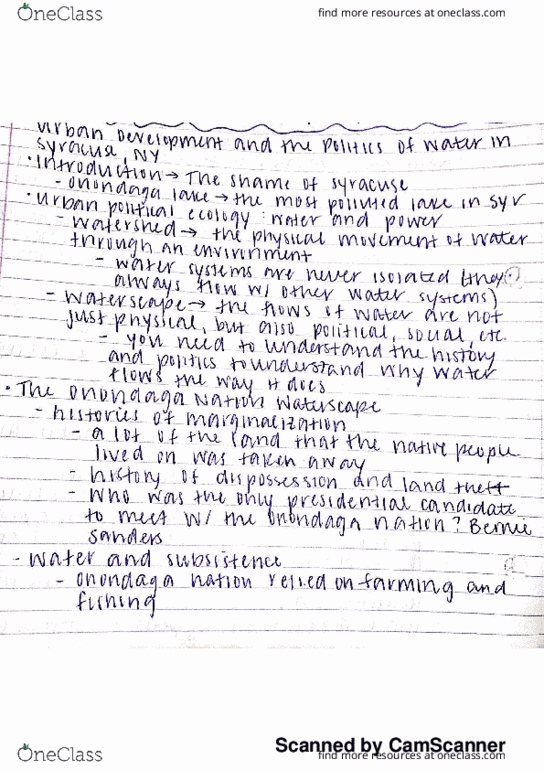 OneClass
find more resources at oneclass.com
Urban Development and the Politics of Water in
Syracuse, NY
• Introduction → The shame of Syracuse
- Onondaga lake → the most polluted lake in Syr
• Urban political ecology: water and power
- watershed → the physical movement of water
through an environment
- water systems are never isolated (they
always flow w/ other water systems)
- waterscape → the flows of water are not
just physical, but also political, social, etc.
- you need to understand the history
and politics to understand why water
flows the way it does
• The Onondaga Nation Waterscape
- histories of marginalization
- a lot of the land that the native people
lived on was taken away
- history of dispossession and land theft
- Who was the only presidential candidate
to meet w/ the Onondaga nation? Bernie
Sanders
- Water and subsistence
- Onondaga nation relied on farming and
fishing
Scanned by CamScanner
OneClass
find more resources at oneclass.com